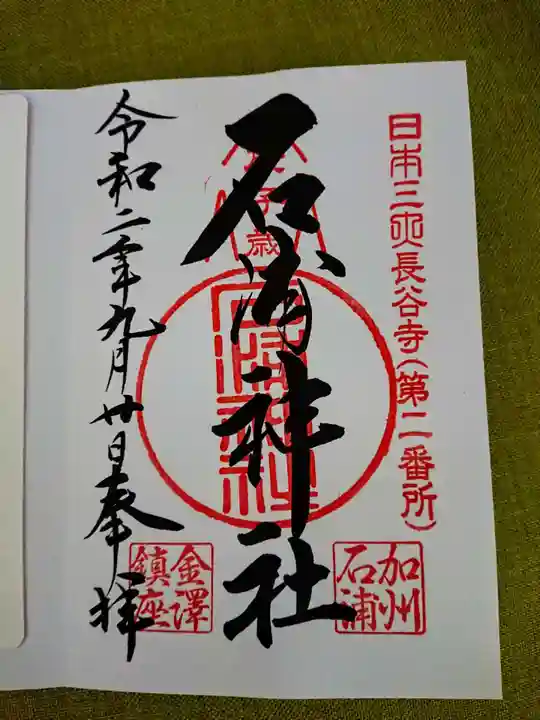 日本三大長谷寺(第二番所)
加州
石浦
石浦神社
歳
石浦神社
令和二年九月廿日奉拝
金澤
鎮座